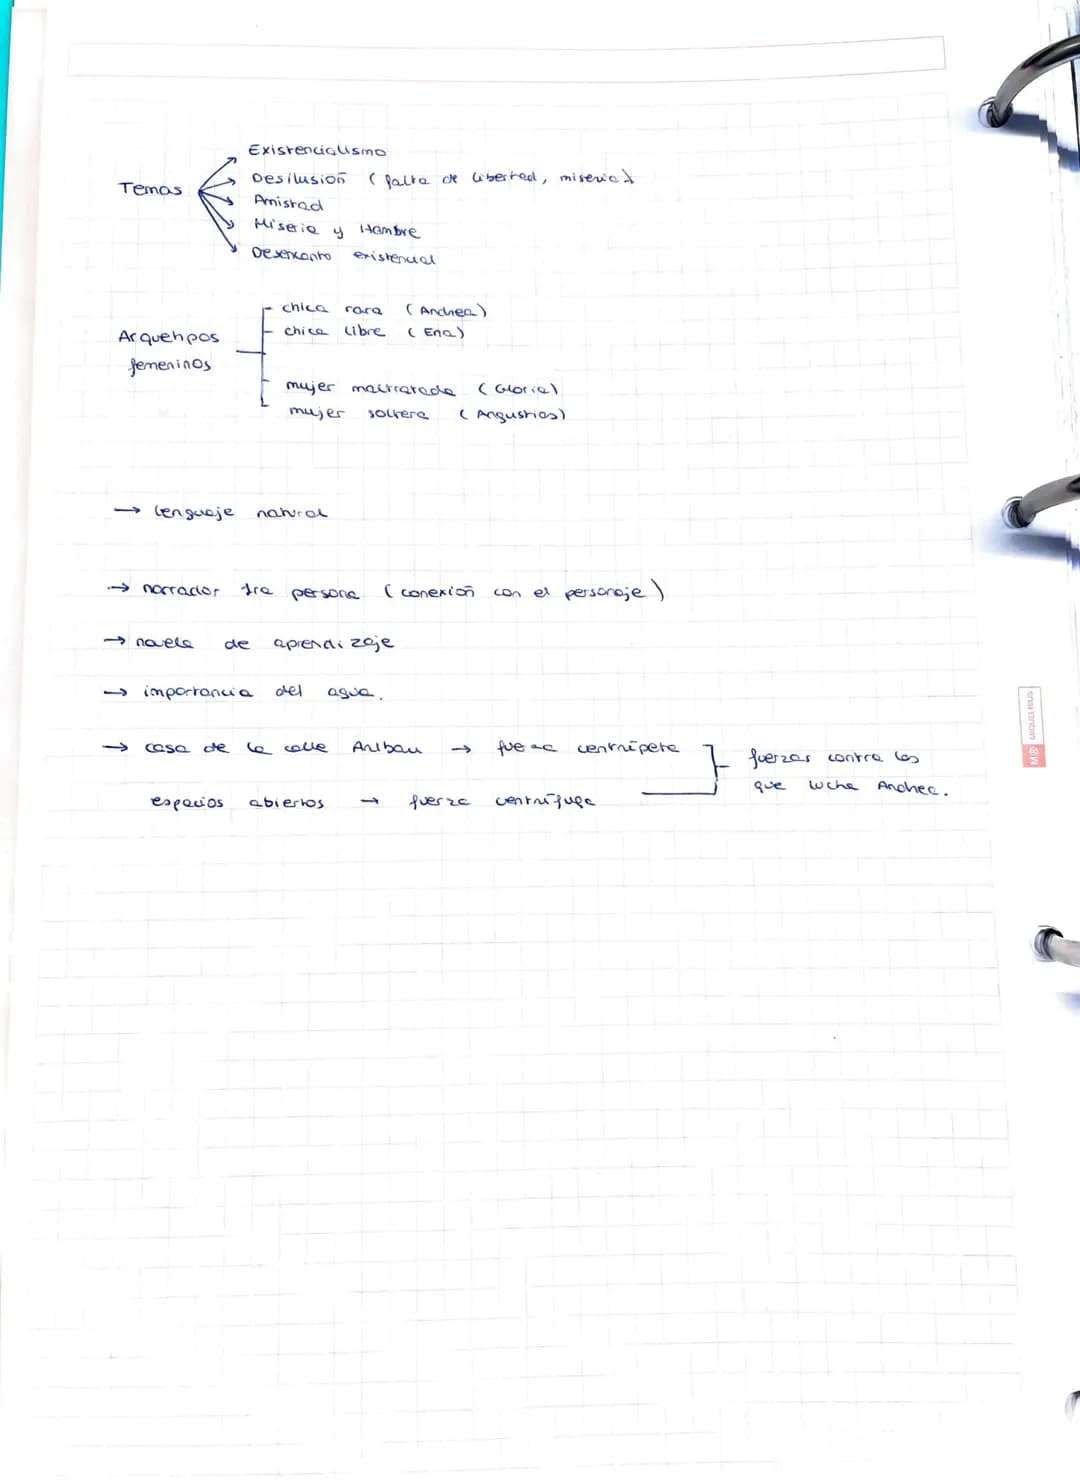 Existencialismo
Temas
Desilusión (falta de libertad, miseria)
Amistad
Miseria y Hambre
Desencanto existencial
chica rara (Andrea)
Arquetipos
femeninos
chica libre (Ena)
mujer maltratada (Gloria)
mujer soltera (Angustias)
→ lenguaje natural
→ narrador 1ra persona (conexión con el personaje)
→ novela de aprendizaje
→ importancia del agua.
→ casa de la calle Aribau → fuerza centrípeta
espacios abiertos → fuerza centrífuga
fuerzas contra las
que lucha Andrea.
MIQUELRIUS